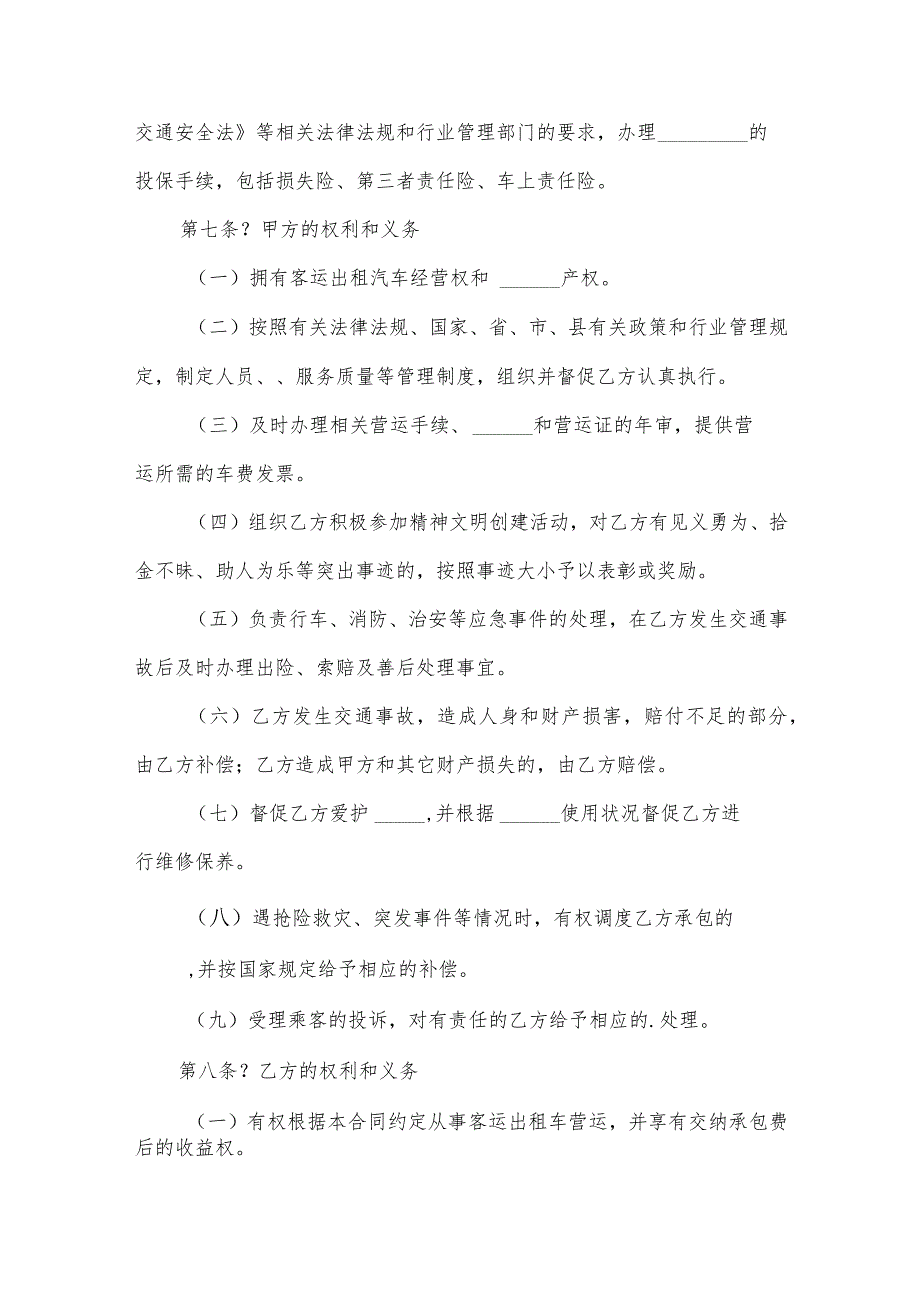 交通安全法》等相关法律法规和行业管理部门的要求，办理_________的
投保手续，包括损失险、第三者责任险、车上责任险。
第七条？甲方的权利和义务
（一）拥有客运出租汽车经营权和 ______产权。
（二）按照有关法律法规、国家、省、市、县有关政策和行业管理规
定，制定人员、、服务质量等管理制度，组织并督促乙方认真执行。
（三）及时办理相关营运手续、______和营运证的年审，提供营
运所需的车费发票。
（四）组织乙方积极参加精神文明创建活动，对乙方有见义勇为、拾
金不昧、助人为乐等突出事迹的，按照事迹大小予以表彰或奖励。
（五）负责行车、消防、治安等应急事件的处理，在乙方发生交通事
故后及时办理出险、索赔及善后处理事宜。
（六）乙方发生交通事故，造成人身和财产损害，赔付不足的部分，
由乙方补偿；乙方造成甲方和其它财产损失的，由乙方赔偿。
（七）督促乙方爱护 _____,并根据 ______使用状况督促乙方进
行维修保养。
（八）遇抢险救灾、突发事件等情况时，有权调度乙方承包的
,并按国家规定给予相应的补偿。
（九）受理乘客的投诉，对有责任的乙方给予相应的.处理。
第八条？乙方的权利和义务
（一）有权根据本合同约定从事客运出租车营运，并享有交纳承包费
后的收益权。